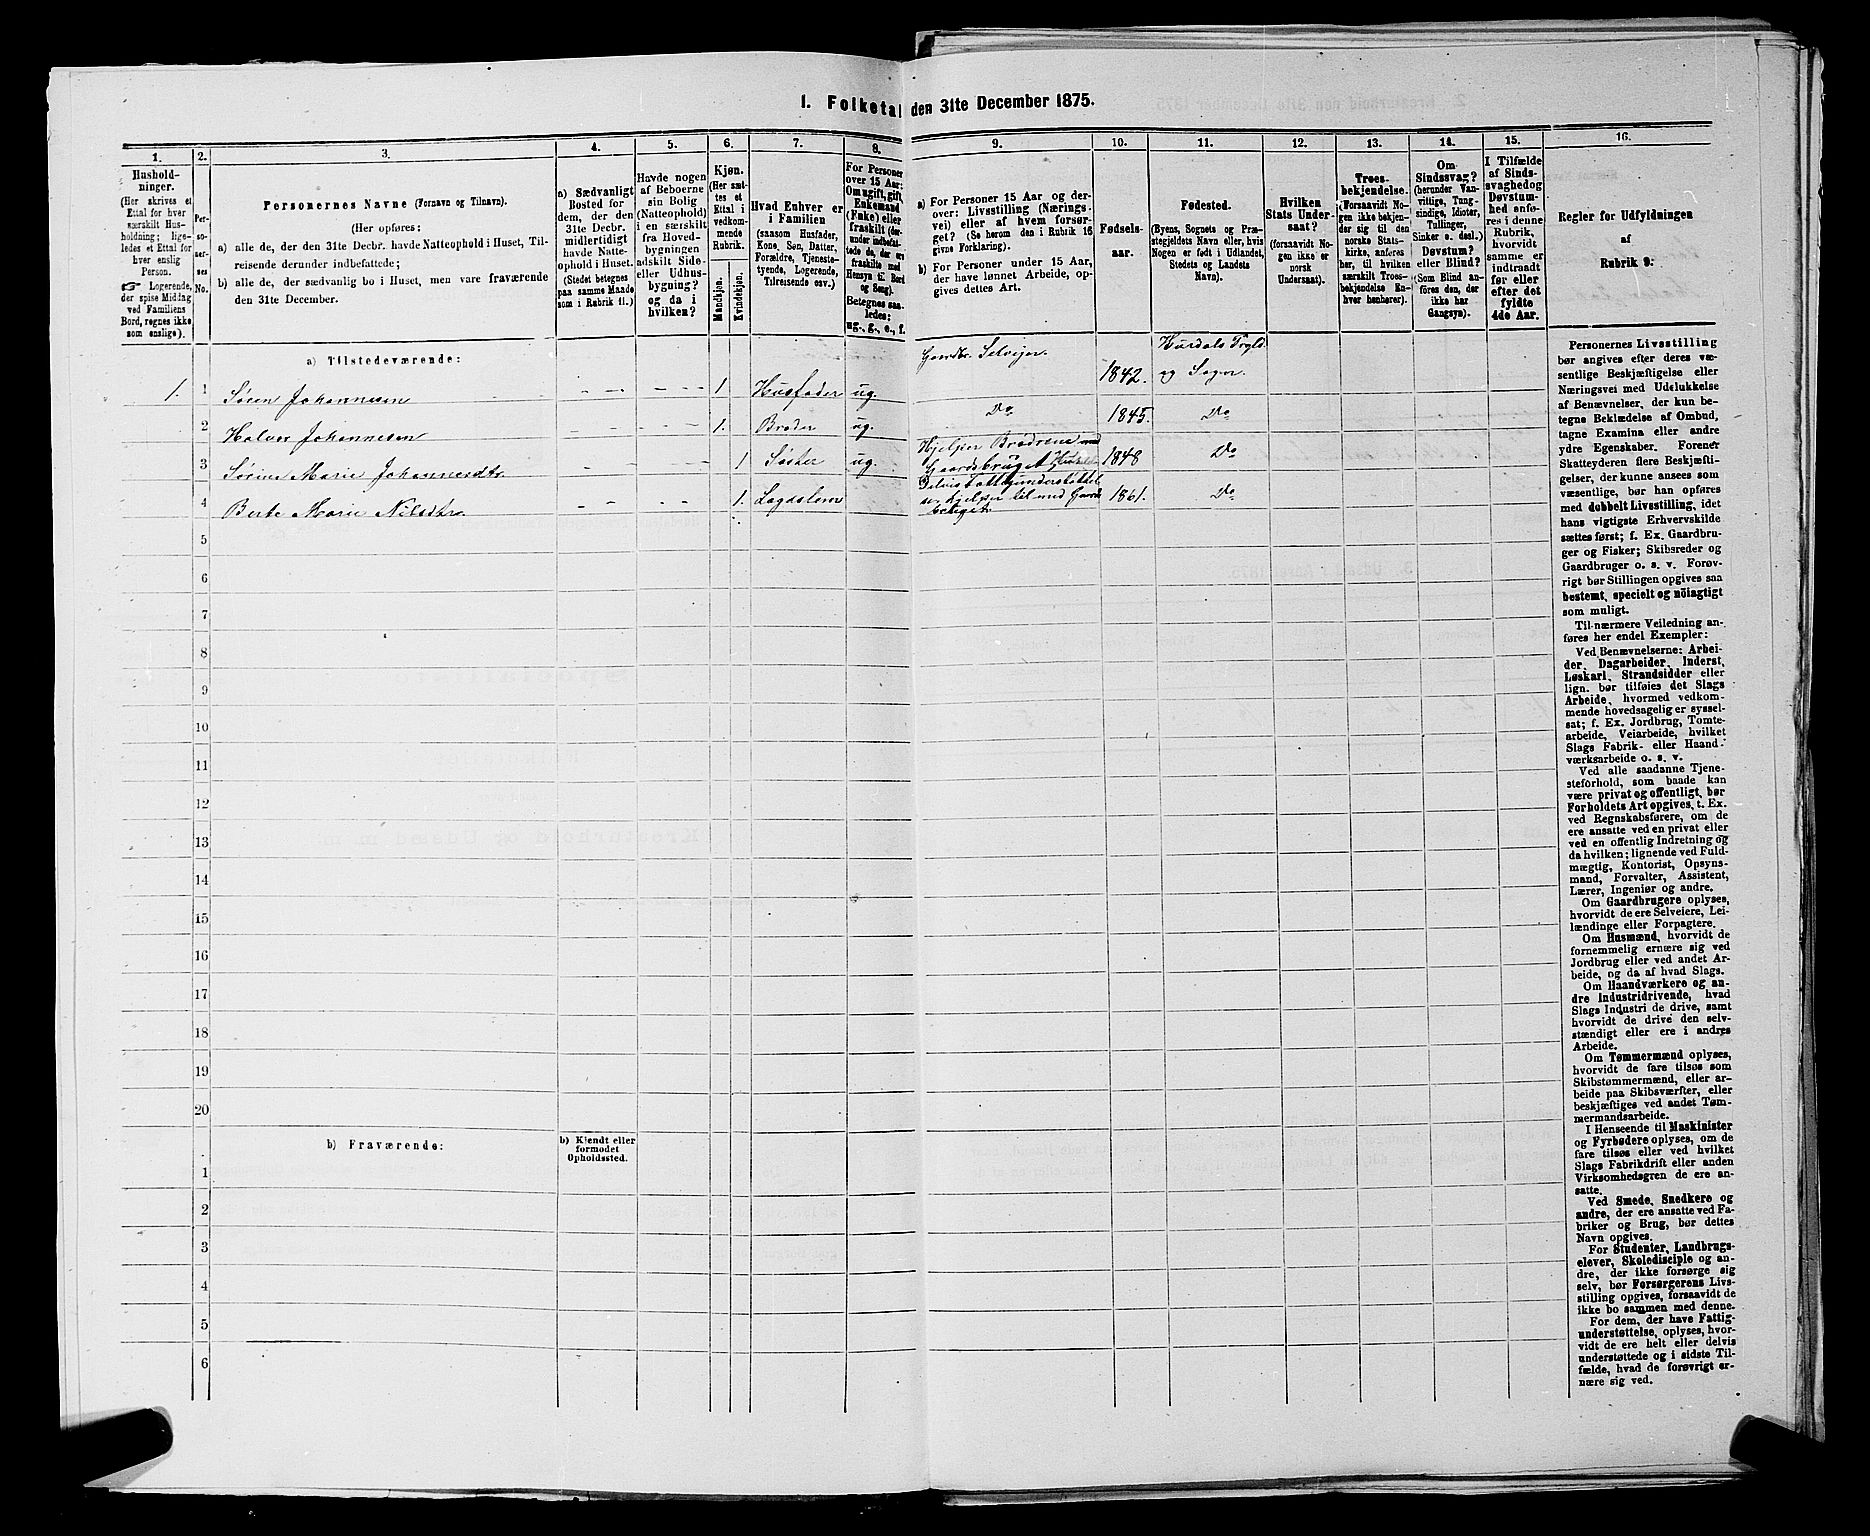 1. Folketal den 31te December 1875.
1.
Hushold-
ninger.
(Her skrives et
Ettal for hver
særskilt Hus-
holdning; lige-
ledes et Ettal for
hver enslig
Person.
☛ Logerende,
der spise Middag
ved Familiens
Bord, regnes ikke
som enslige).
2.
Per-
so-
ner-
nes
No.
3.
Personernes Navne (Fornavn og Tilnavn).
(Her opføres:
a) alle de, der den 31te Decbr. havde Natteophold i Huset, Til-
reisende derunder indbefattede;
b) alle de, der sædvanlig bo i Huset, men vare fraværende
den 31te December.
4.
a) Sædvanligt
Bosted for
dem, der den
31te Decbr.
midlertidigt
havde Natte-
ophold i Huset.
(Stedet betegnes
paa samme Maade
som i Rubrik 11.)
5.
Havde nogen
af Beboerne
sin Bolig
(Natteophold)
i en særskilt
fra Hoved-
bygningen
adskilt Side-
eller Udhus-
bygning?
og da i
hvilken?
6.
Kjøn.
(Her sæt-
tes et
Ettal i
vedkom-
mende
Rubrik.
Mandkjøn.
Kvindekjøn.
7.
Hvad Enhver er
i Familien
(saasom Husfader,
Kone, Søn, Datter,
Forældre, Tjeneste-
tyende, Logerende,
Tilreisende osv.)
8.
For Personer
over 15 Aar:
Om ugift, gift,
Enkemand
(Enke) eller
fraskilt (der-
under indbefat-
tede de, der ere
fraskilte med
Hensyn til Bord
og Seng).
Betegnes saa-
ledes:
ug., g., e., f.
9.
a) For Personer 15 Aar og der-
over: Livsstilling (Nærings-
vei) eller af hvem forsør-
get? (Se herom den i Rubrik 16
givne Forklaring).
b) For Personer under 15 Aar,
der have lønnet Arbeide, op-
gives dettes Art.
10.
Fødsels-
aar.
11.
Fødested.
(Byens, Sognets og Præ-
stegjeldets Navn eller, hvis
Nogen er født i Udlandet,
Stedets og Landets
Navn).
12.
Hvilken
Stats Under-
saat?
(forsaavidt No-
gen ikke er
norsk
Undersaat).
13.
Troes-
bekjendelse.
(Forsaavidt No-
gen ikke bekjen-
der sig til den
norske Stats-
kirke, anføres
her, til hvilken
særskilt Troes-
bekjendelse En-
hver henhører).
14.
Om
Sindssvag?
(herunder Van-
vittige, Tung-
sindige, Idioter,
Tullinger,
Sinker o. desl.)
Døvstum?
eller Blind?
(Som Blind an-
føres den, der
ikke har
Gangsyn).
15.
I Tilfælde
af Sinds-
svaghed og
Døvstum-
hed anfø-
res i denne
Rubrik,
hvorvidt
samme er
indtraadt
før eller
efter det
fyldte
4de Aar.
16.
Regler for Udfyldningen
af
Rubrik 9.
a) Tilstedeværende:
1. 1 Søren Johannesen - - - - - 1 Husfader ug. Gardbr. Selvejer. 1842. Hurdals Prgld. og Sogn.
2 Halvor Johannesen - - - - - 1. Broder ug. Do 1845. Do
3 Sørine Marie Johannesdtr - - - - 1 Søster ug. Hjelper Brødrene med Gaardsbruget 1848 Do
4 Berte Marie Nilsdtr. - - - - 1. Lagdslem Delvis Fattigunderstøttet hjelper til med 1861. Do
5
6
7
8
9
10
11
12
13
14
15
16
17
18
19
20
b) Fraværende:
b) Kjendt eller
formodet
Opholdssted.
1
2
3
4
5
6
Personernes Livsstilling
bør angives efter deres væ-
sentlige Beskjæftigelse eller
Næringsvei med Udelukkelse
af Benævnelser, der kun be-
tegne Beklædelse af Ombud,
tagne Examina eller andre
ydre Egenskaber. Forener
Skatteyderen flere Beskjæfti-
gelser, der kunne ansees som
væsentlige, bør han opføres
med dobbelt Livsstilling, idet
hans vigtigste Erhvervskilde
sættes først; f. Ex. Gaardbru-
ger og Fisker; Skibsreder og
Gaardbruger o. s. v. Forøv-
rigt bør Stillingen opgives saa
bestemt, specielt og nöiagtigt
som muligt.
Til nærmere Veiledning an-
føres her endel Exempler:
Ved Benævnelserne: Arbei-
der, Dagarbeider, Inderst,
Løskarl, Strandsidder eller
lign. bør tilføies det Slags
Arbeide, hvormed vedkom-
mende hovedsagelig er syssel-
sat; f. Ex. Jordbrug, Tomte-
arbeide, Veiarbeide, hvilket
Slags Fabrik- eller Haand-
værksarbeide o. s. v.
Ved alle saadanne Tjene-
steforhold, som baade kan
være privat og offentligt, bør
Forholdets Art opgives, t. Ex.
ved Regnskabsførere, om de
ere ansatte ved en privat eller
ved en offentlig Indretning og
da hvilken; lignende ved Fuld-
mægtig, Kontorist, Opsyns-
mand, Forvalter, Assistent,
Lærer, Ingeniør og andre.
Om Gaardbrugere oplyses,
hvorvidt de ere Selveiere, Lei-
lændinge eller Forpagtere.
Om Husmænd, hvorvidt de
fornemmelig ernære sig ved
Jordbrug eller ved andet Ar-
beide, og da af hvad Slags.
Om Haandværkere og an-
dre Industridrivende, hvad
Slags Industri de drive, samt
hvorvidt de drive den selv-
stændigt eller ere i andres
Arbeide.
Om Tømmermænd oplyses,
hvorvidt de fare tilsøs som
Skibstømmermænd, eller ar-
beide paa Skibsværfter, eller
beskjæftiges ved andet Tøm-
mermandsarbeide.
I Henseende til Maskinister
og Fyrbødere oplyses, om de
fare tilsøs eller ved hvilket
Slags Fabrikdrift eller anden
Virksomhedsgren de ere an-
satte.
Ved Smede, Snedkere og
andre, der ere ansatte ved Fa-
briker og Brug, bør dettes
Navn opgives.
For Studenter, Landbrugs-
elever, Skoledisciple og an-
dre, der ikke forsørge sig
selv, bør Forsørgerens Livs-
stilling opgives, forsaavidt de
ikke bo sammen med denne.
For dem, der have Fattig-
understøttelse, oplyses, hvor-
vidt de ere helt eller delvis
understøttede og i sidste Til-
fælde, hvad de forøvrigt er-
nære sig ved.